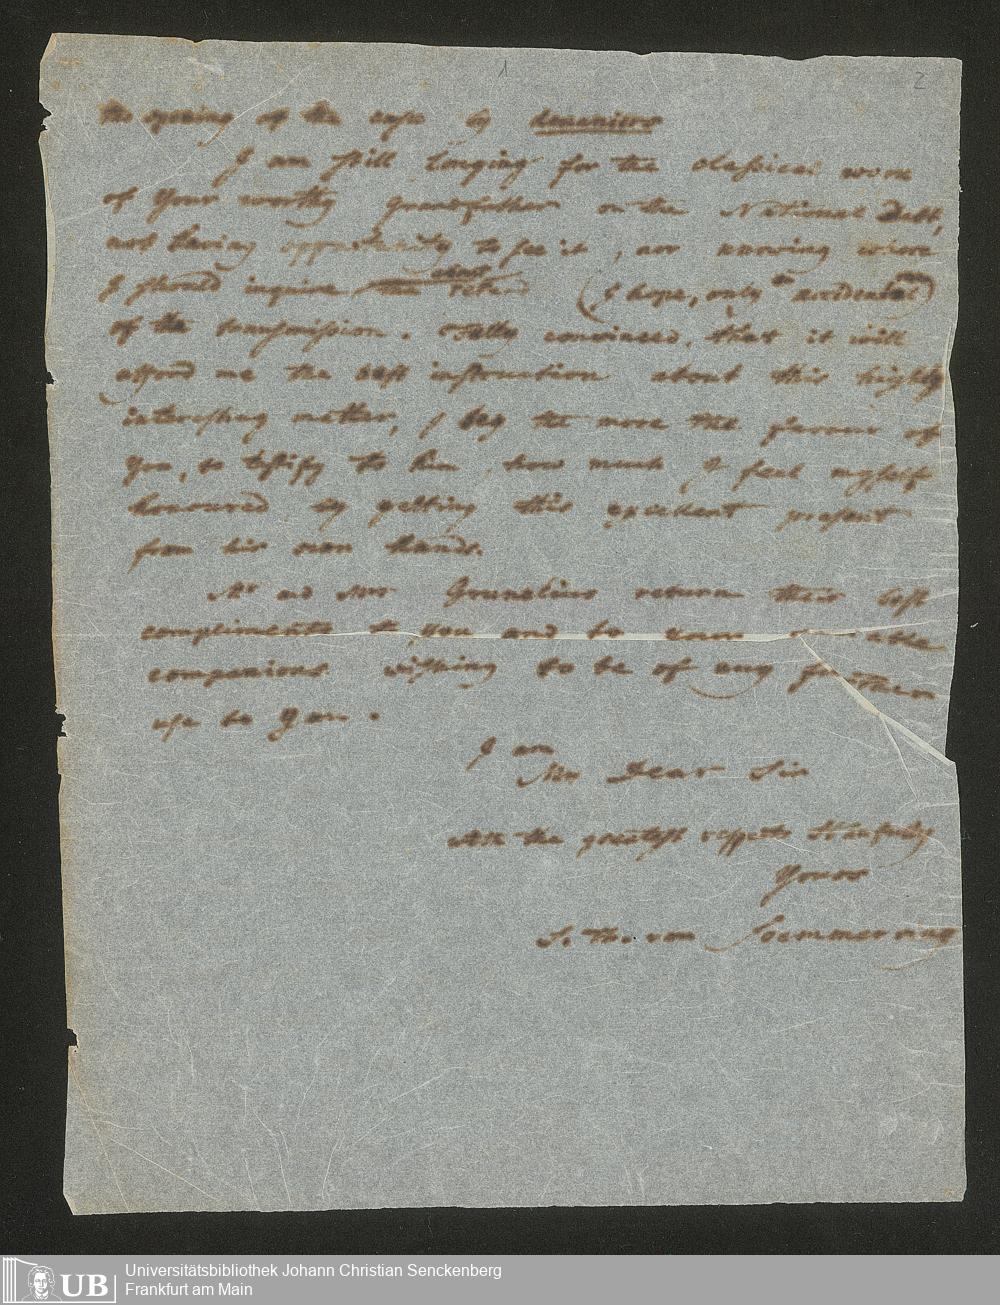 1
2
the opening of the case by
I am still longing for the classical work
of Your worthy Grandfather on the National Debt,
not having opportunity to see it, nor knowing where
I should inquire the about (I hope, only accidental)
of the transmission. Fully convinced, that it will
afford me the best instruction about this highly
interesting matter, I beg the more the favour of
You, to testify to him, how much I feel myself
honoured by getting this excellent present
from his own hands.
Mr and Mrs Grunelius return their best
compliments to you and to your able
companions. Wishing to be of any further
use to You.
I am
My Dear Sir
the greatest respects
Yours
S. Th. von Soemmerring
UB
Universitätsbibliothek Johann Christian Senckenberg
Frankfurt am Main